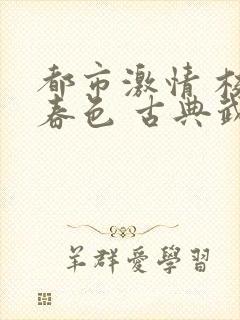 都市激情 校
春色 古典武
羊群愛學習